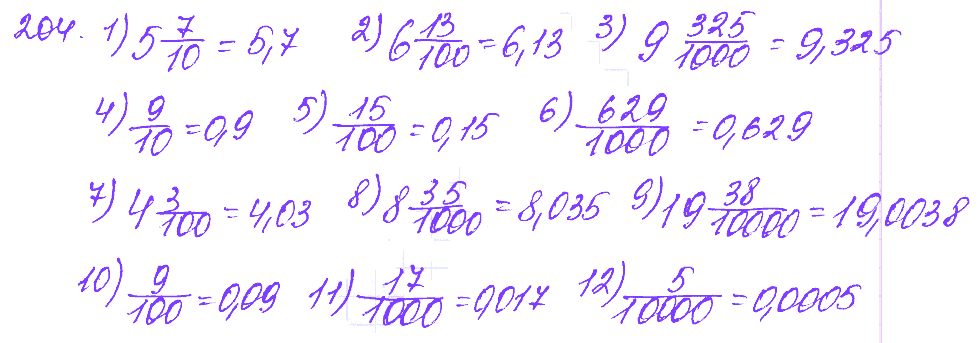 204. 1) 5 7/10 = 5,7 2) 6 13/100 = 6,13 3) 9 325/1000 = 9,325
4) 9/10 = 0,9 5) 15/100 = 0,15 6) 629/1000 = 0,629
7) 4 3/100 = 4,03 8) 8 35/1000 = 8,035 9) 19 38/10000 = 19,0038
10) 9/100 = 0,09 11) 17/1000 = 0,017 12) 5/10000 = 0,0005